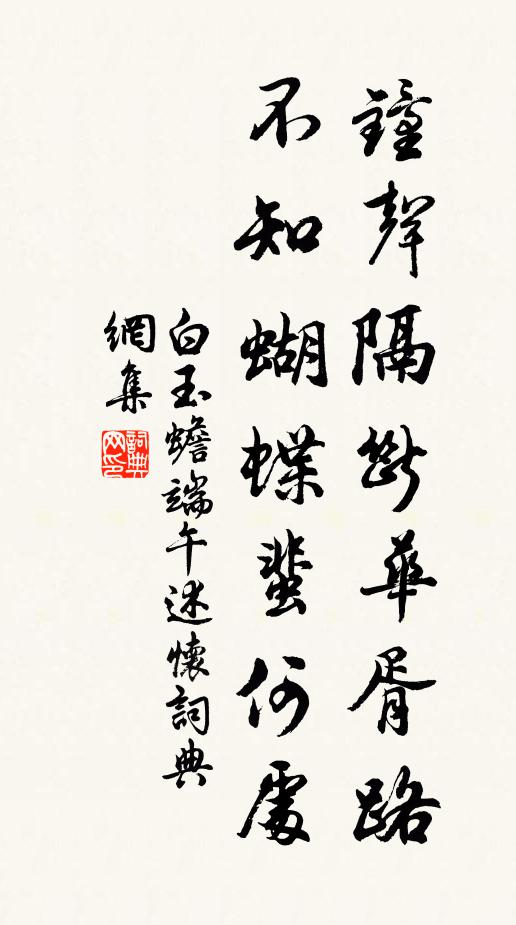 鐘聲隔斷華胥路
不知蝴蝶蜚何處
白玉蟾端午述懷詞典
網集
詞典
网印